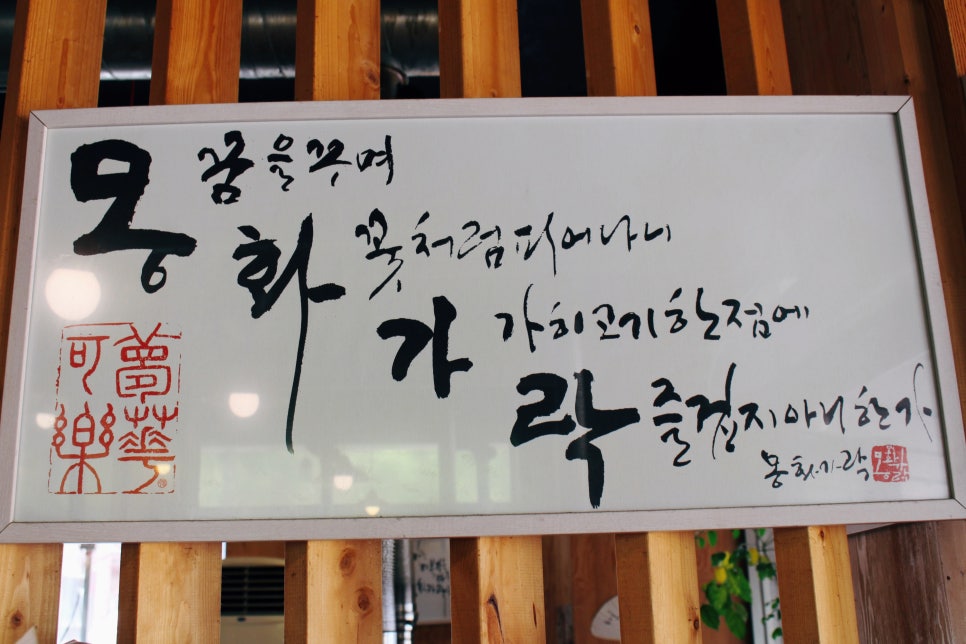 몽 꿈을꾸며
화 꽃처럼피어나니
가 가히고기한점에
락 즐겁지아니한가
몽화가락
夢華
可樂